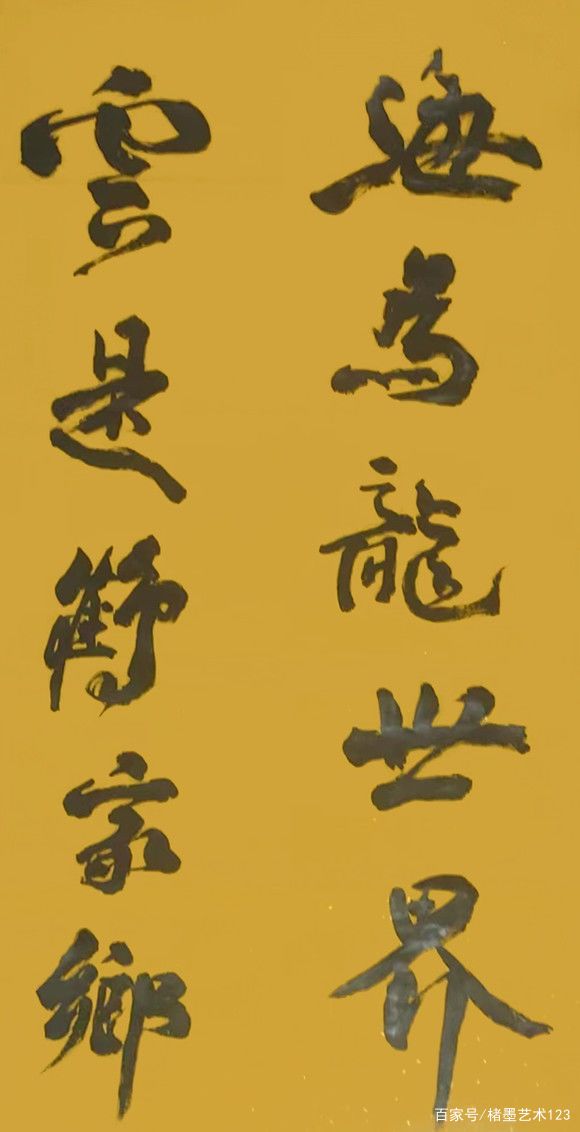 海為龍世界
雲是鶴家鄉
百家号/楮墨艺术123